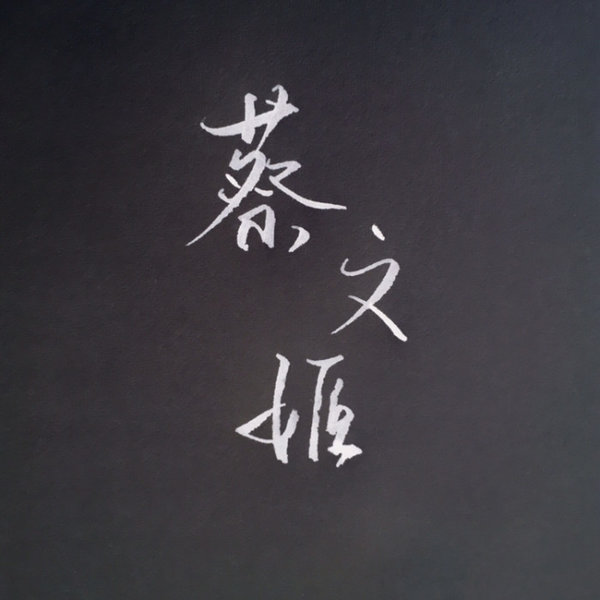 蔡文姬